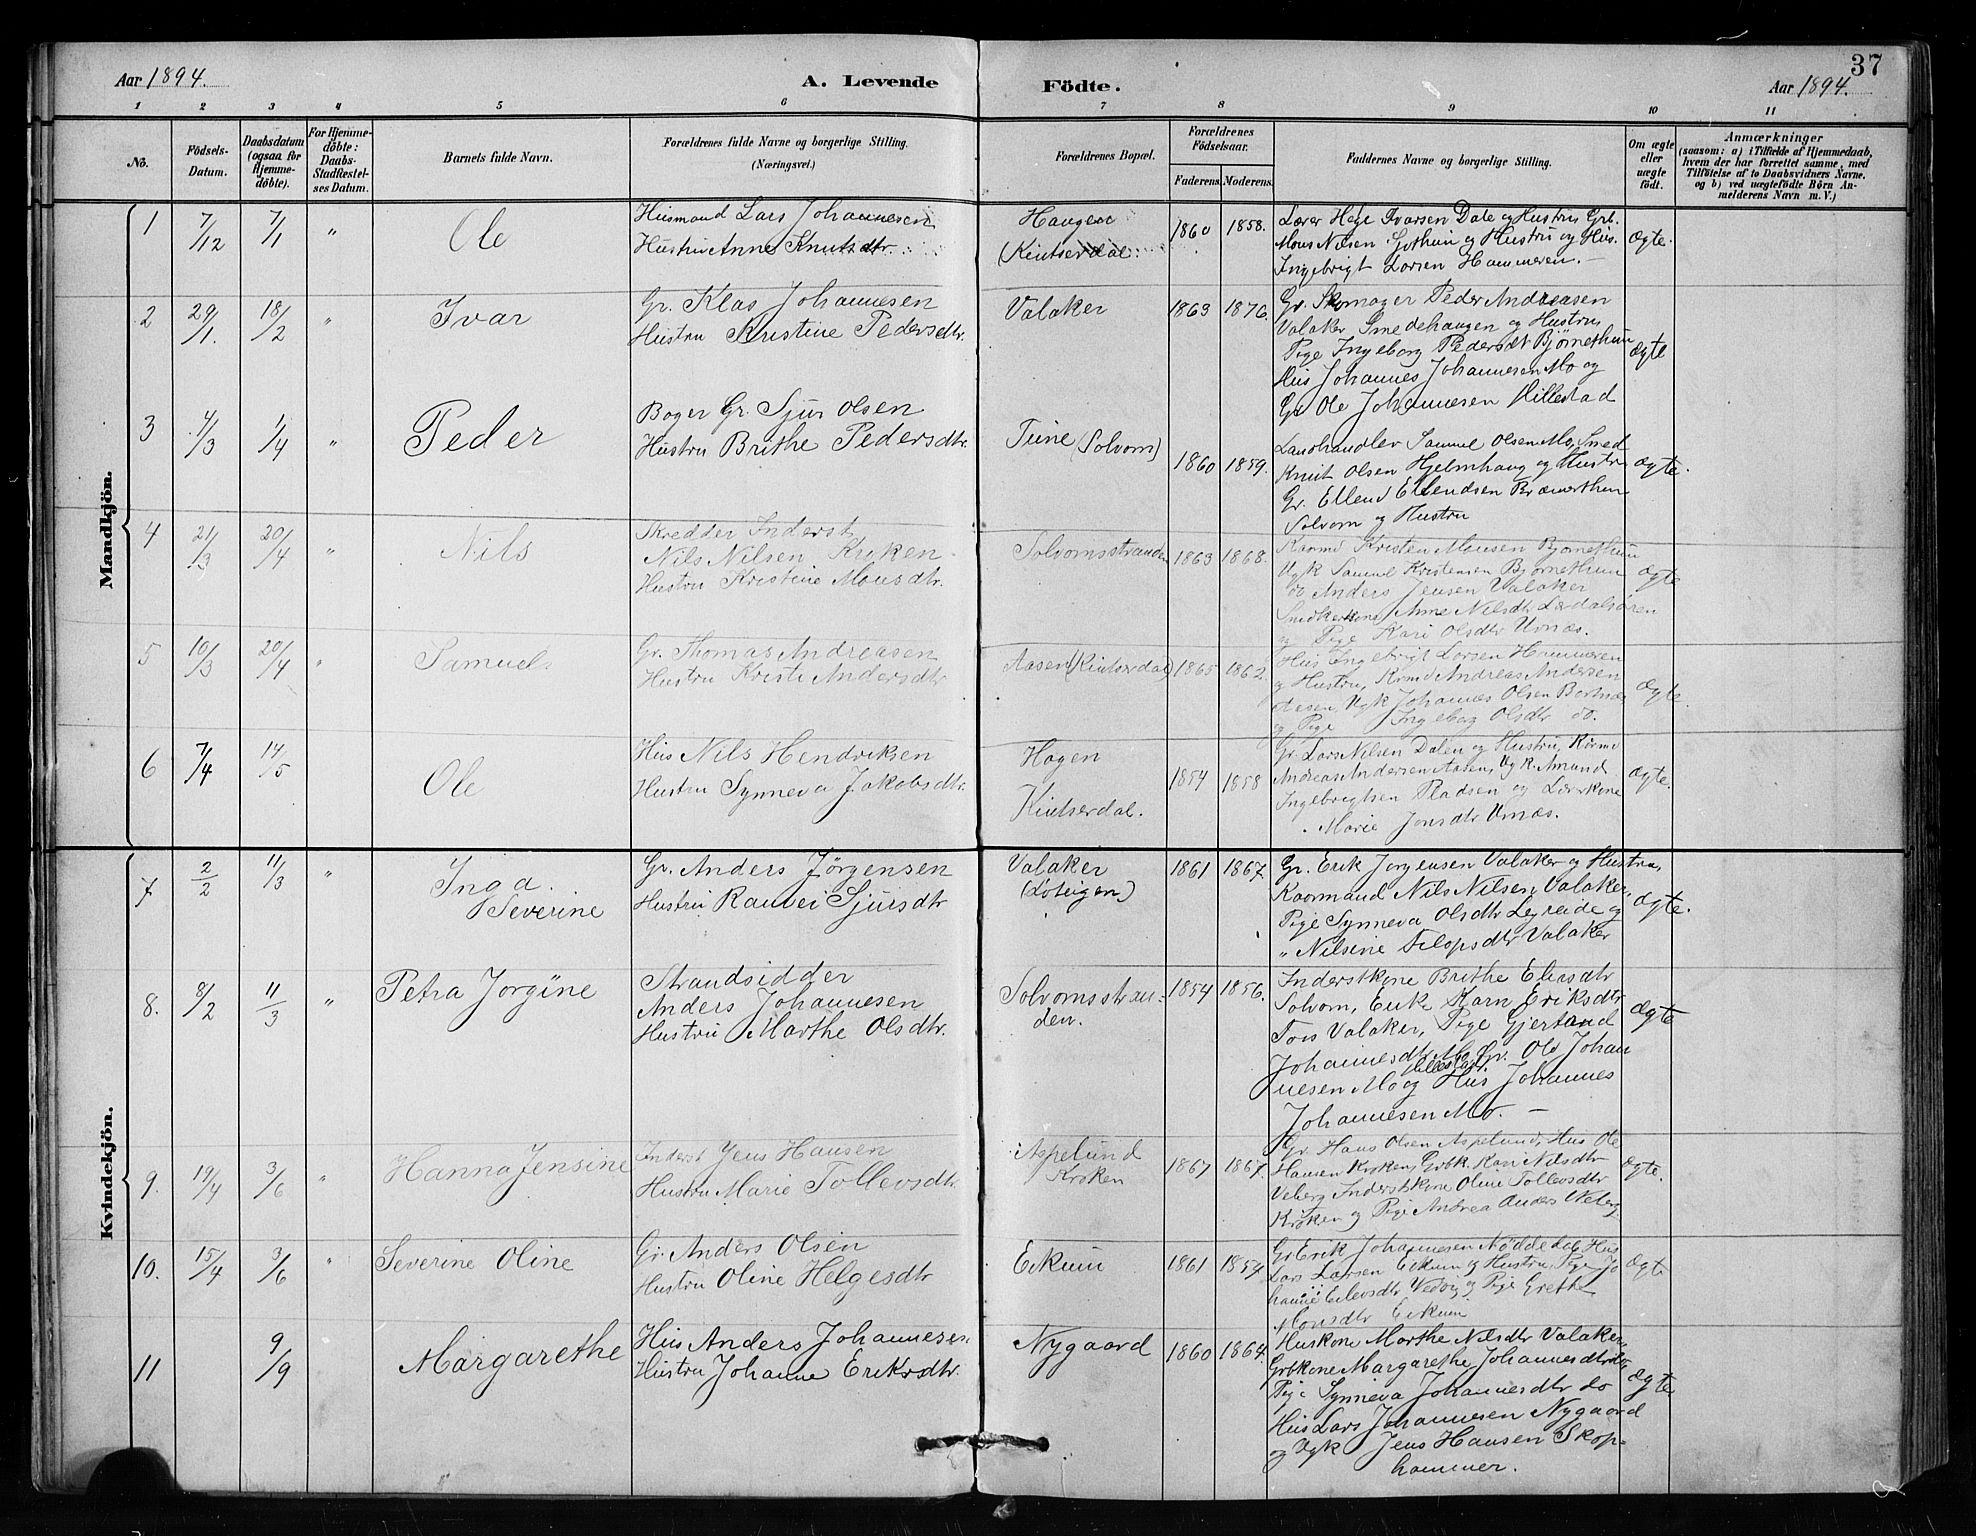 37
Aar 1894. A. Levende Födte. Aar 1894.
1 2 3 4 5 6 7 8 9 10 11
No.
Födsels-Datum.
Daabsdatum (ogsaa for Hjemme-döbte).
For Hjemme-döbte: Daabs-Stadfæstel-ses Datum.
Barnets fulde Navn.
Forældrenes fulde Navne og borgerlige Stilling. (Næringsvei.)
Forældrenes Bopæl.
Forældrenes Födselsaar.
Faderens. Moderens.
Faddernes Navne og borgerlige Stilling.
Om ægte eller uægte födt.
Anmærkninger
(saasom: a) i Tilfælde af Hjemmedaab,
hvem der har forrettet samme, med
Tilföielse af to Daabsvidners Navne,
og b) ved uægtefödte Börn An-
melderens Navn m. V.)
Mandkjön.
1 7/12 7/1 " Ole
Husmand Lars Johannesen
Hustru Anne Knutsdtr.
Haugen
(Kinserdal
1860 1858.
Lærer Helge Ivarsen Dale og Hustru Grb.
Mons Nilsen og Hustru og Hus.
Ingebrigt Larsen Hammeren. –
Ægte.
2 29/1. 18/2 " Ivar
Gr. Klas Johannesen
Hustru Kristine Pedersdtr.
Valaker
1863 1876.
Gr. Skomager Peder Andreasen
Valaker Smedehaugen og Hustru
Pige Ingeborg Pedersdt Bjørnethun
Hus Johannes Johannesen Mo og
Gr Ole Johannesen Hillestad
Ægte
3 4/3 1/4 " Peder
Gr. Sjur Olsen
Hustru Brithe Pedersdtr.
(Solvorn)
1860 1859.
Landhandler Samuel Olsen Mo, Smed
Knut Olsen Hjelmhaug og Hustru
Gr. Ellend Ellendsen
Solvorn og Hustru
Ægte.
4 21/3 20/4 " Nils
Skredder Inderst
Nils Nilsen Kroken
Hustru Kristine Monsdtr.
Solvornsstranden
1863 1868.
Kaarmd Kristen Monsen Bjørnethun
Ugk Samuel Kristensen Bjørnethun
do Anders Jensen Valaker
Anne Nilsdtr Lærdalsören
og Pige Kari Olsdtr Urnæs.
Ægte
5 10/3 20/4 " Samuel
Gr. Thomas Andreasen
Hustru Kristi Andersdtr
Aasen (Kinserdal)
1865 1862.
Hus Ingebrigt Larsen Hammeren
og Hustru, Kaarmd Andreas Andersen
Aasen, Ugk Johannes Olsen
og Pige Ingeborg Olsdtr do.
Ægte.
6 7/4 14/5
Ole
Hus Nils Hendriksen
Hustru Synneva Jakobsdtr.
Hagen
Kinserdal.
1854 1858
Gr. Lars Nilsen Dalen og Hustru, Kaarmd
Andreas Andersen Aasen, Ugk. Amund
Ingebrigtsen Pladsen og Lærerkone
Marie Jonsdtr Urnæs.
Ægte.
Kvindekjön.
7 2/2 11/3 "
Inga
Severine
Gr. Anders Jörgensen
Hustru Ranvei Sjursdtr
Valaker
(Loteigen)
1861 1867.
Gr. Erik Jorgensen Valaker og Hustru,
Kaarmand Nils Nilsen Valaker,
Pige Synneva Olsdtr Legreide og
" Nilsine Valaker
Ægte.
8. 8/2 11/3 "
Petra Jorgine
Strandsidder
Anders Johannesen
Hustru Marthe Olsdtr.
Solvornsstran-
den.
1854 1856.
Inderstkone Brithe Eliesdtr
Solvorn, Enke Karn Eriksdtr
Valaker, Pige Gjertrud
Johannesdtr Mo Gr. Ole Johan
nesen Mo og Hus Johannes
Hillestad.
Johannesen Mo. –
Ægte
9. 19/4 3/6 "
Hanna Jensine
Inderst Jens Hansen
Hustru Marie Tollevsdtr
Aspelund
Kroken
1867 1867.
Gr. Hans Olsen Aspelund, Hus Ole
Hansen Kroken, Grbk. Kari Nilsdtr
Veberg Inderstkone Oline Tollevsdtr
Kroken og Pige Andrea Anders Veberg
Ægte.
10. 15/4 3/6 "
Severine Oline
Gr. Anders Olsen
Hustru Oline Helgesdtr
Eikum
1861 1854.
Gr Erik Johannesen Hus
Lars Larsen Eikum og Hustru, Pige Jo
hanne Eilevsdtr og Pige Grethe
Monsdtr Eikum
Ægte
11 9/9
Margarethe
Hus Anders Johannesen
Hustru Johanne Eriksdtr.
Nygaard
1860 1864.
Huskone Marthe Nilsdtr Valaker
Grbkone Margarethe Johannesdtr do
Pige Synneva Johannesdtr do
Hus Lars Johannesen Nygaard
og Ugk Jens Hansen Skop-
hammer.
Ægte.